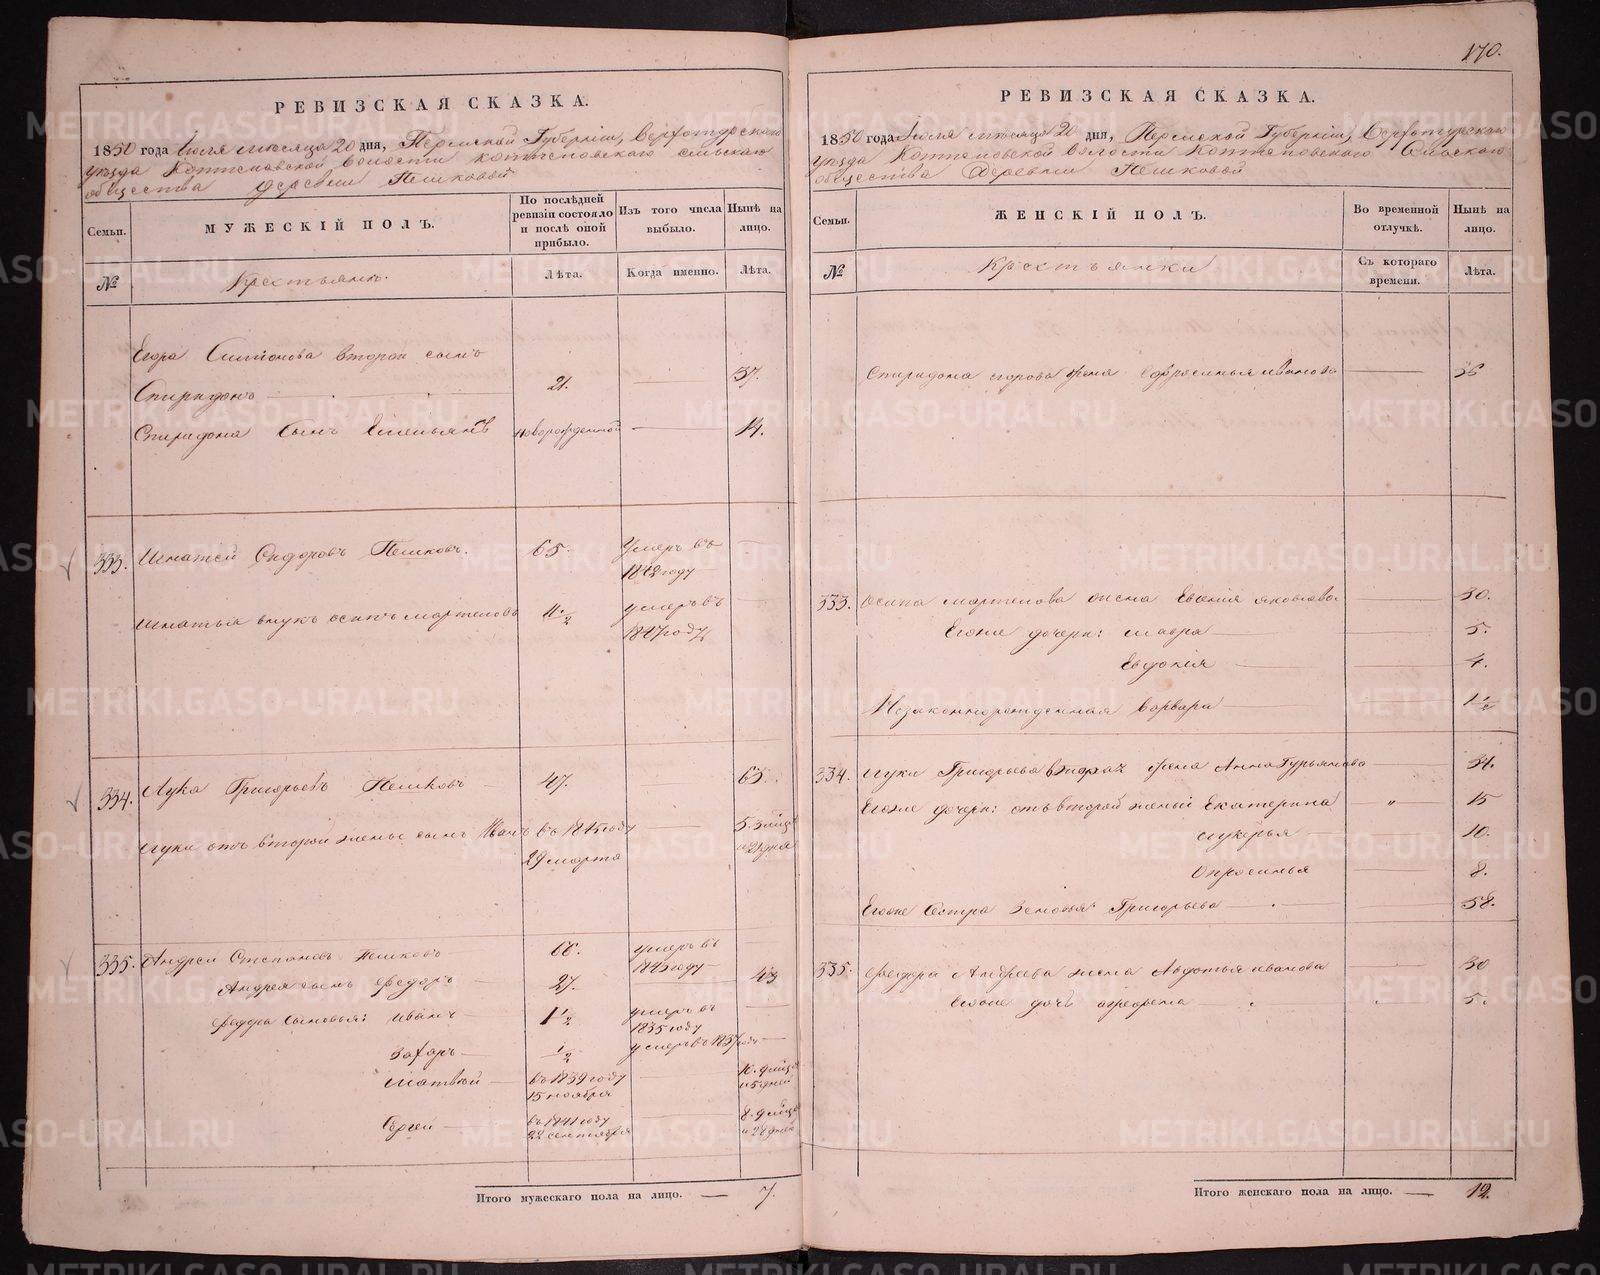 РЕВИЗСКАЯ СКАЗКА.
1850 года Июля месяца 20 дня, Пермской Губерніи, Верхотурскаго
уѣзда Коптеловской Волости Коптеловскаго сельскаго
общества деревни Пешковой
Семьи.
МУЖЕСКІЙ ПОЛЪ.
По послѣдней ревизіи состояло и послѣ оной прибыло.
Изъ того числа выбыло.
Нынѣ на лицо.
№
Крестьяне.
Лѣта.
Когда именно.
Лѣта.
Егора Симонова второй сынъ
Спиридонъ 21. 37.
Спиридона сынъ Емельянъ новорожденной 14.
333. Игнатей Сидоровъ Пешковъ. 65. Умеръ въ
1842 году
Игнатья внукъ осипъ мартемовъ 11 1/2 умеръ въ
1847 году
334. Лука Григорьевъ Пешковъ 47. 63.
Луки отъ второй жены сынъ Иванъ въ 1845 году
29 марта
5. 3 мѣся
и 21 дня
335. Андрей Степановъ Пешковъ 66. умеръ въ
1843 году
Андрея сынъ Федоръ 27. 43
Федора сыновья: Иванъ 1 1/2 умеръ въ
1835 году
Захаръ 1/2 умеръ въ 1837 году
Матвѣй въ 1839 году
15 ноября
10. 8 мѣся
и 5 дней
Сергей въ 1841 году
22 сентября
8. 9 мѣся
и 28 дней
Итого мужескаго пола на лицо. — 7.
170.
РЕВИЗСКАЯ СКАЗКА.
1850 года Июля месяца 20 дня, Пермской Губерніи, Верхотурскаго
уѣзда Коптеловской Волости Коптеловскаго Сельскаго
общества Деревни Пешковой
Семьи.
ЖЕНСКІЙ ПОЛЪ.
Во временной отлучкѣ.
Нынѣ на лицо.
№
Крестьянки
Съ котораго времени.
Лѣта.
Спиридона егорова жена Ефросинья иванова 36
333. Осипа мартемова жена Евгенія яковлева 30.
Егоже дочери: Мавра 5.
Евдокія 4.
Незаконнорожденная Варвара 1 1/2
334. Луки Григорьева вторая жена Анна Гурьянова 34.
Егоже дочери: отъ второй жены Екатерина „ 15
Лукерья 10.
Опросинья 8.
Егоже Сестра Зеновья Григорьева 58.
335. Федора Андреева жена Авдотья иванова 30
Егоже дочь агрофена 5.
Итого женскаго пола на лицо. — 12.
METRIKI.GASO-URAL.RU